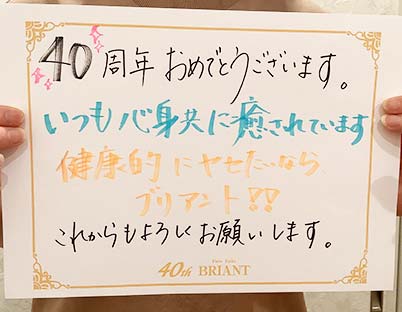 40周年おめでとうございます。
いつも心身共に癒されています
健康的にヤセたいなら
ブリアント!!
これからもよろしくお願いします。
40th BRIANT